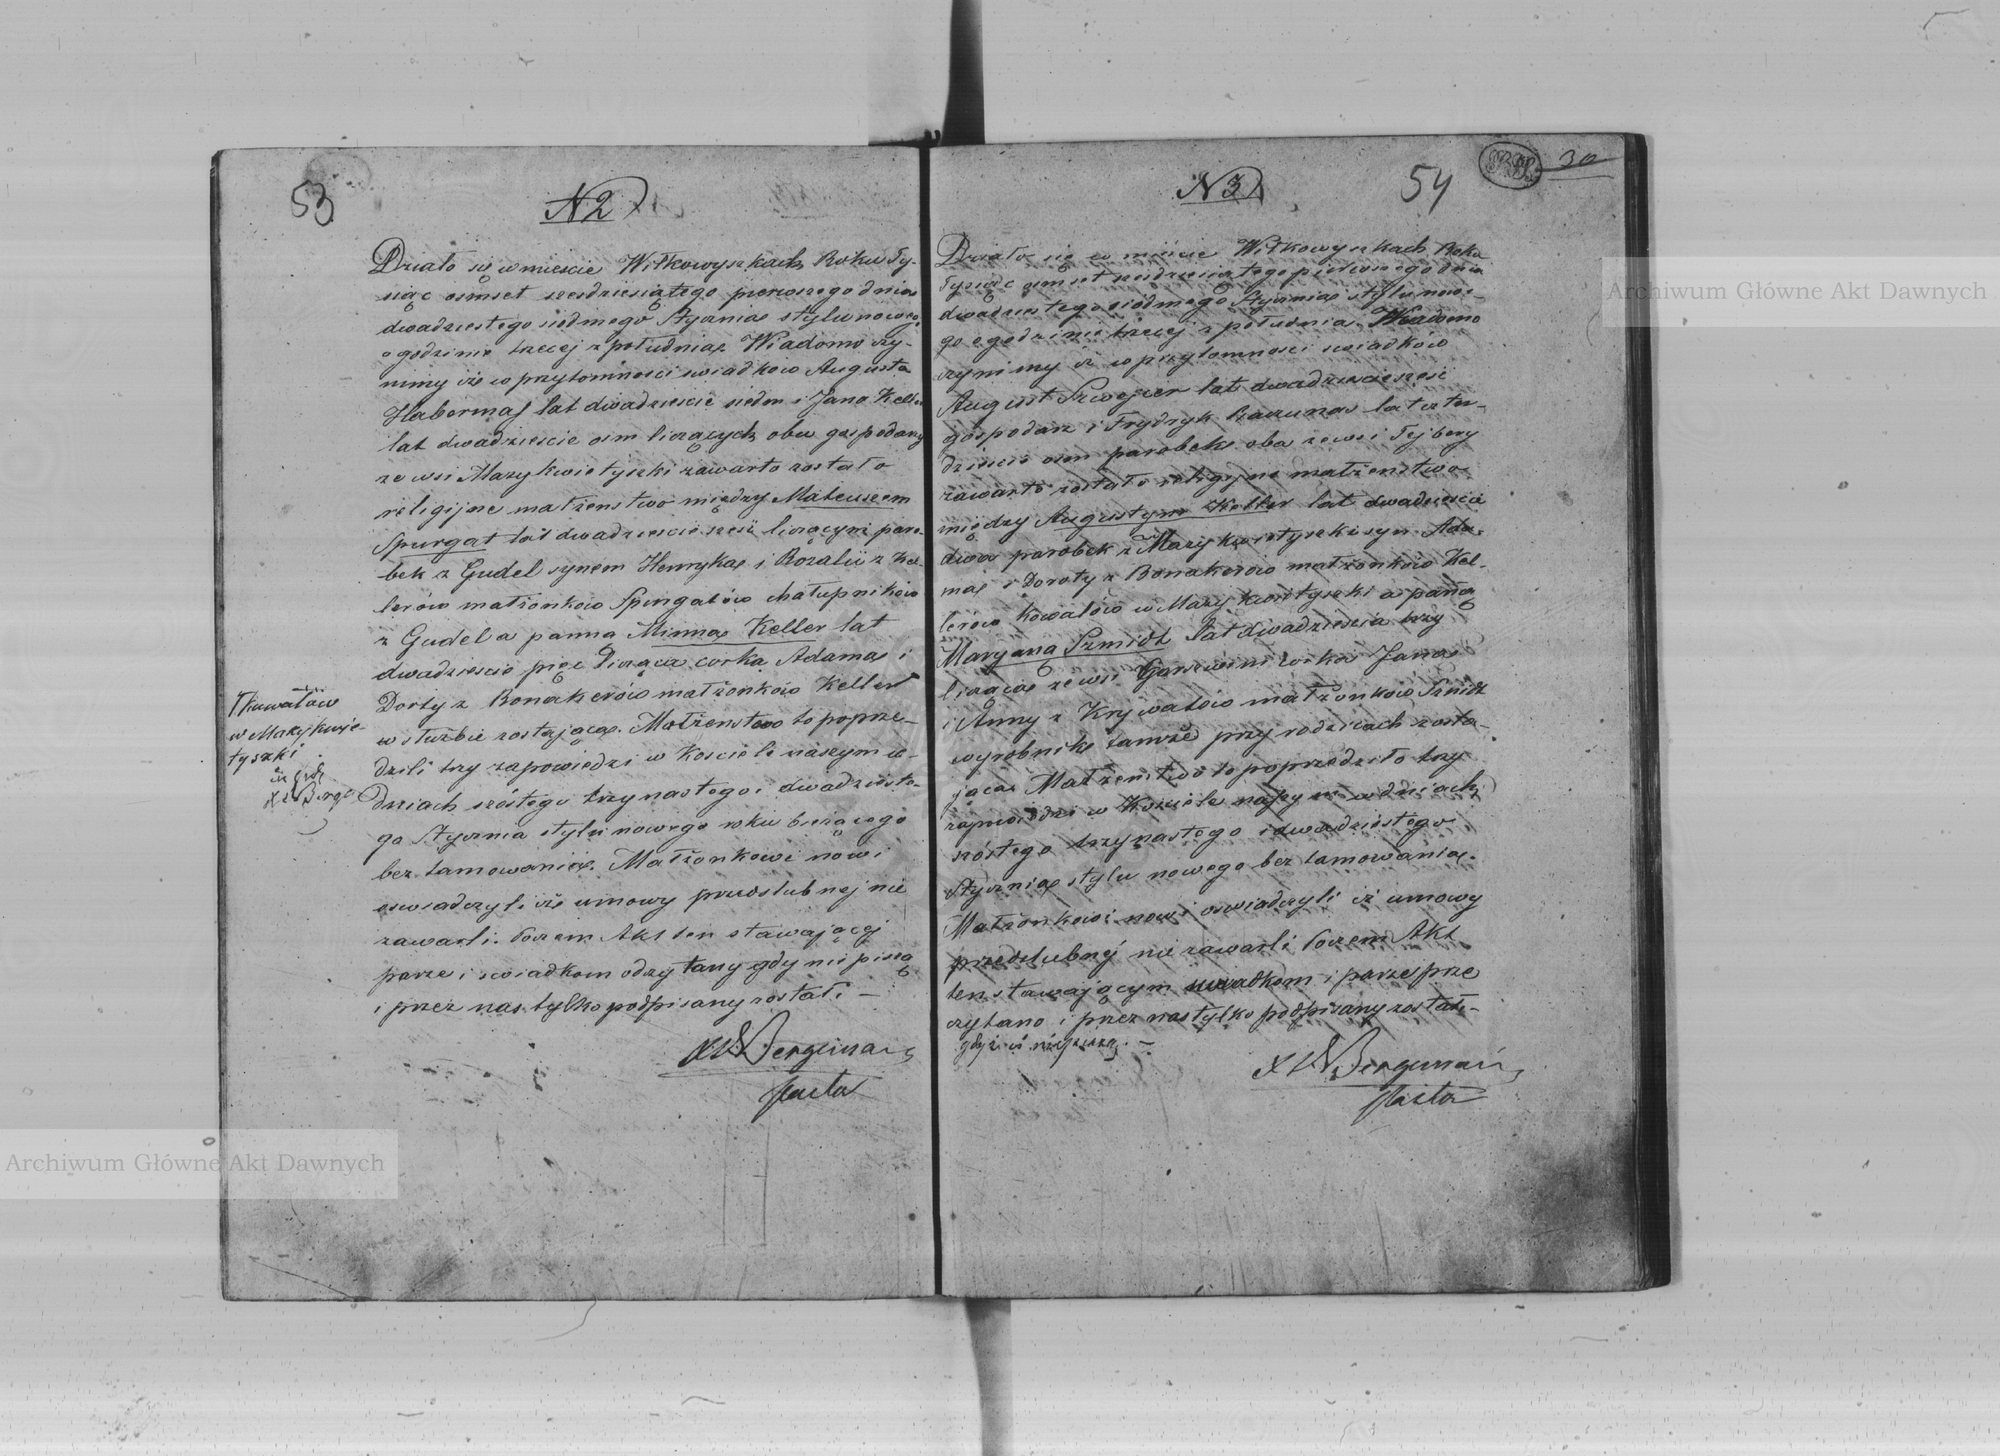 53
N 2
Działo się w mieście Wiłkowyszkach Roku ty-
siąc ośmset szesdziesiątego pierwszego dnia
dwadziestego siedmego Stycznia stylu nowego
o godzinie trzeciej z południa. Wiadomo czy-
nimy iże w przytomności swiadków Augusta
Habermas lat dwadzieście siedm i Jana Keller
lat dwadzieście osm liczących obu gospodarzy
ze wsi Mazykwietyszki zawarto zostało
religijne małżenstwo między Mateuszem
Spurgat lat dwadzieście sześć liczącym paro-
bek z Gudel synem Henryka i Rozalii z Kel-
lerów małżonków Spurgatów chałupników
z Gudel a panna Minna Keller lat
dwadzieście pięc licząca corka Adama i
Doroty z Bonakerów małżonków Keller
w służbie zostająca. Małżenstwo to poprze-
dzili trzy zapowiedzi w Kosciele naszym w
dniach szóstego trzynastego i dwadzieste-
go Stycznia stylu nowego roku bieżącego
bez tamowania. Małżonkowi nowi
oswiadczyli iże umowy przedslubnej nie
zawarli. Poczem Akt ten stawającej
parze i swiadkom odczytany gdy nie piszą
i przez nas tylko podpisany został. —
Bergman
Pastor
T kowalów
w Mazykwie-
tyszki
Archiwum Główne Akt Dawnych
N 3
54
30
Działo się w mieście Wiłkowyszkach Roku
tysiąc osmset szesdziesiątego pierwszego dnia
dwadziestego siódmego Stycznia stylu nowe-
go o godzinie trzeciej z południa. Wiadomo
czynimy iż w przytomności swiadków
August Szwejcer lat dwadzieście sześć
gospodarz i Frydryk Raczunas lat czter-
dzieście osm parobek oba ze wsi Tejbery
zawarto zostało religijne małżenstwo
między Augustym Keller lat dwadzieście
dwa parobek z Mazykwietyszki syn Ada-
ma i Doroty z Bonakerów małżonków Kel-
lerów kowalów w Mazykwietyszki a panną
Maryanną Szmidt lat dwadzieścia trzy
licząca ze wsi córka Jana
i Anny z Krywatów małżonków Szmidt
wyrobnik tamże przy rodzicach zosta-
jąca. Małżenstwo to poprzedziło trzy
zapowiedzi w Kosciele naszym w dniach
szóstego trzynastego i dwadziestego
Stycznia stylu nowego bez tamowania.
Małżonkowi nowi oswiadczyli iż umowy
przedslubnéj nie zawarli. Poczem Akt
ten stawającym swiadkom i parze prze
czytano i przez nas tylko podpisany został.—
Bergman
Pastor
Archiwum Główne Akt Dawnych